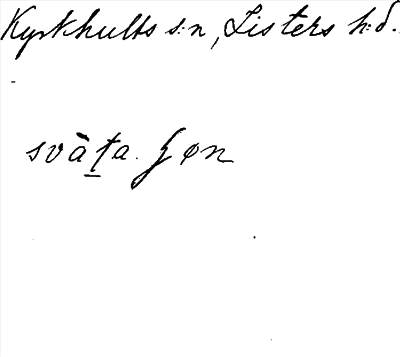 Kyrkhults s:n, Listers h:d.
svàta. ʃøn